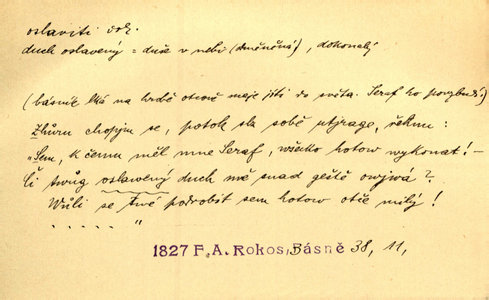 oslaviti dok.
duch oslavený = duše v nebi (změněná), dokonalý
(básník lká na hrobě otcově maje jíti do světa. Seraf ho povzbudí.)
Zhůru chopjm se, potok sla sobě utjrage, řeknu:
„Sem, k čemu měl mne Seraf, všecko hotow wykonat! –
Či twůg oslawený duch mě snad geště owjwá?
Wůli se twé podrobit sem hotow otče milý!
. . . . . "
1827 F. A. Rokos, Básně 38, 11,